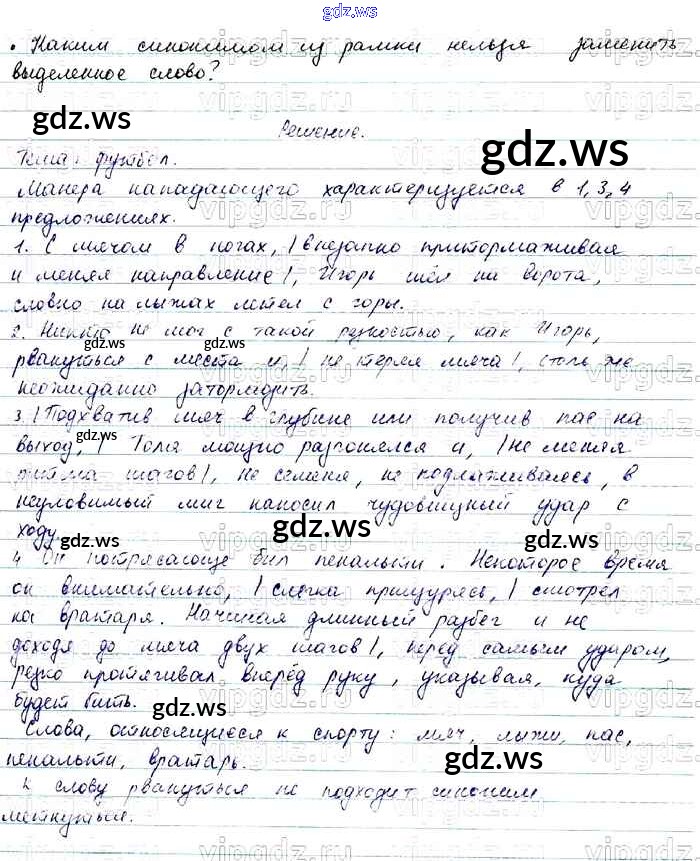 gdz.ws
• Каким синонимом из рамки нельзя заменить
выделенное слово?
gdz.ws
Решение.
gdz.ws
Тема: футбол.
Манера нападающего характеризуется в 1, 3, 4
предложениях.
1. С мячом в ногах, | внезапно притормаживая
и меняя направление|, Игорь шёл на ворота,
словно на лыжах летел с горы.
2. Никто не мог с такой резкостью, как Игорь,
gdz.ws
рвануться с места и, | не теряя мяча|, столь же
неожиданно затормозить.
3. |Подхватив мяч в глубине или получив пас на
выход, | Толя мощно разгонялся и, |не меняя
gdz.ws
ритма шагов|, не семеня, не подлаживаясь, в
неуловимый миг наносил чудовищный удар с
ходу.
gdz.ws
gdz.ws
4. Он потрясающе бил пенальти. Некоторое время
он внимательно, | слегка прищурясь, | смотрел
на вратаря. Начиная длинный разбег и не
доходя до мяча двух шагов|, перед самым ударом,
резко протягивал вперёд руку, указывая, куда
будет бить.
gdz.ws
Слова, относящиеся к спорту: мяч, лыжи, пас,
пенальти, вратарь.
gdz.ws
К слову рвануться не подходит синоним
метнуться.
vipgdz.ru